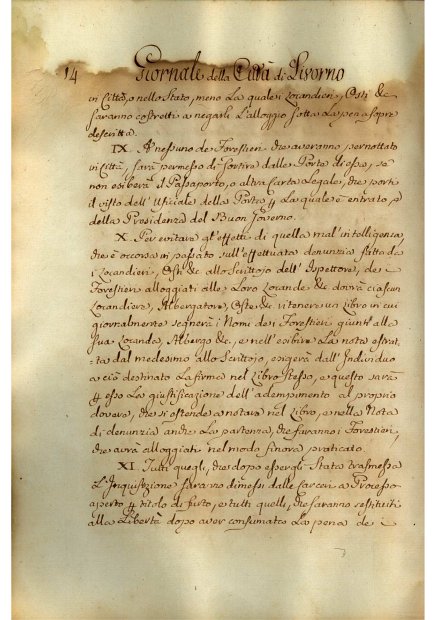 14 Giornale della Città di Livorno
in Città, o nello Stato, meno la quale i Locandieri, Osti &c
saranno costretti a negarli l'alloggio sotto la pena sopra
descritta.
IX. A nessuno de Forestieri che averanno pernottato
in Città, sarà permesso di sortire dalle Porte di essa, se
non esiberà il Passaporto, o altra Carta Legale, che porti
il visto dell'Ufiziale della Porta p la quale è entrato, o
della Presidenza del Buon Governo.
X. Per evitare gl'effetti di quella mal'intelligenza
che è occorsa in passato sull'effettuata denunzia fatta da
i Locandieri, Osti &c allo Scrittojo dell'Ispettore, de i
Forestieri alloggiati alle loro Locande &c dovrà ciascun
Locandiere, Albergatore, Oste &c ritenere un Libro in cui
giornalmente segnerà i Nomi de i Forestieri giunti alla
sua Locanda, Albergo &c, e nell'esibire la nota estrat-
ta dal medesimo allo Scrittojo, esigerà dall'Individuo
a ciò destinato la firma nel Libro stesso, e questo sarà
p esso la giustificazione dell'adempimento al proprio
dovere, che si estende a notare nel Libro, e nella Nota
di denunzia anche la partenza, che faranno i Forestieri,
che avrà alloggiati nel modo finora praticato.
XI. Tutti quegli, che dopo essergli stata trasmessa
l'Inquisizione saranno dimessi dalle carceri a Processo
aperto p titolo di furto, e tutti quelli, che saranno restituiti
alla Libertà dopo aver consumata la pena de i